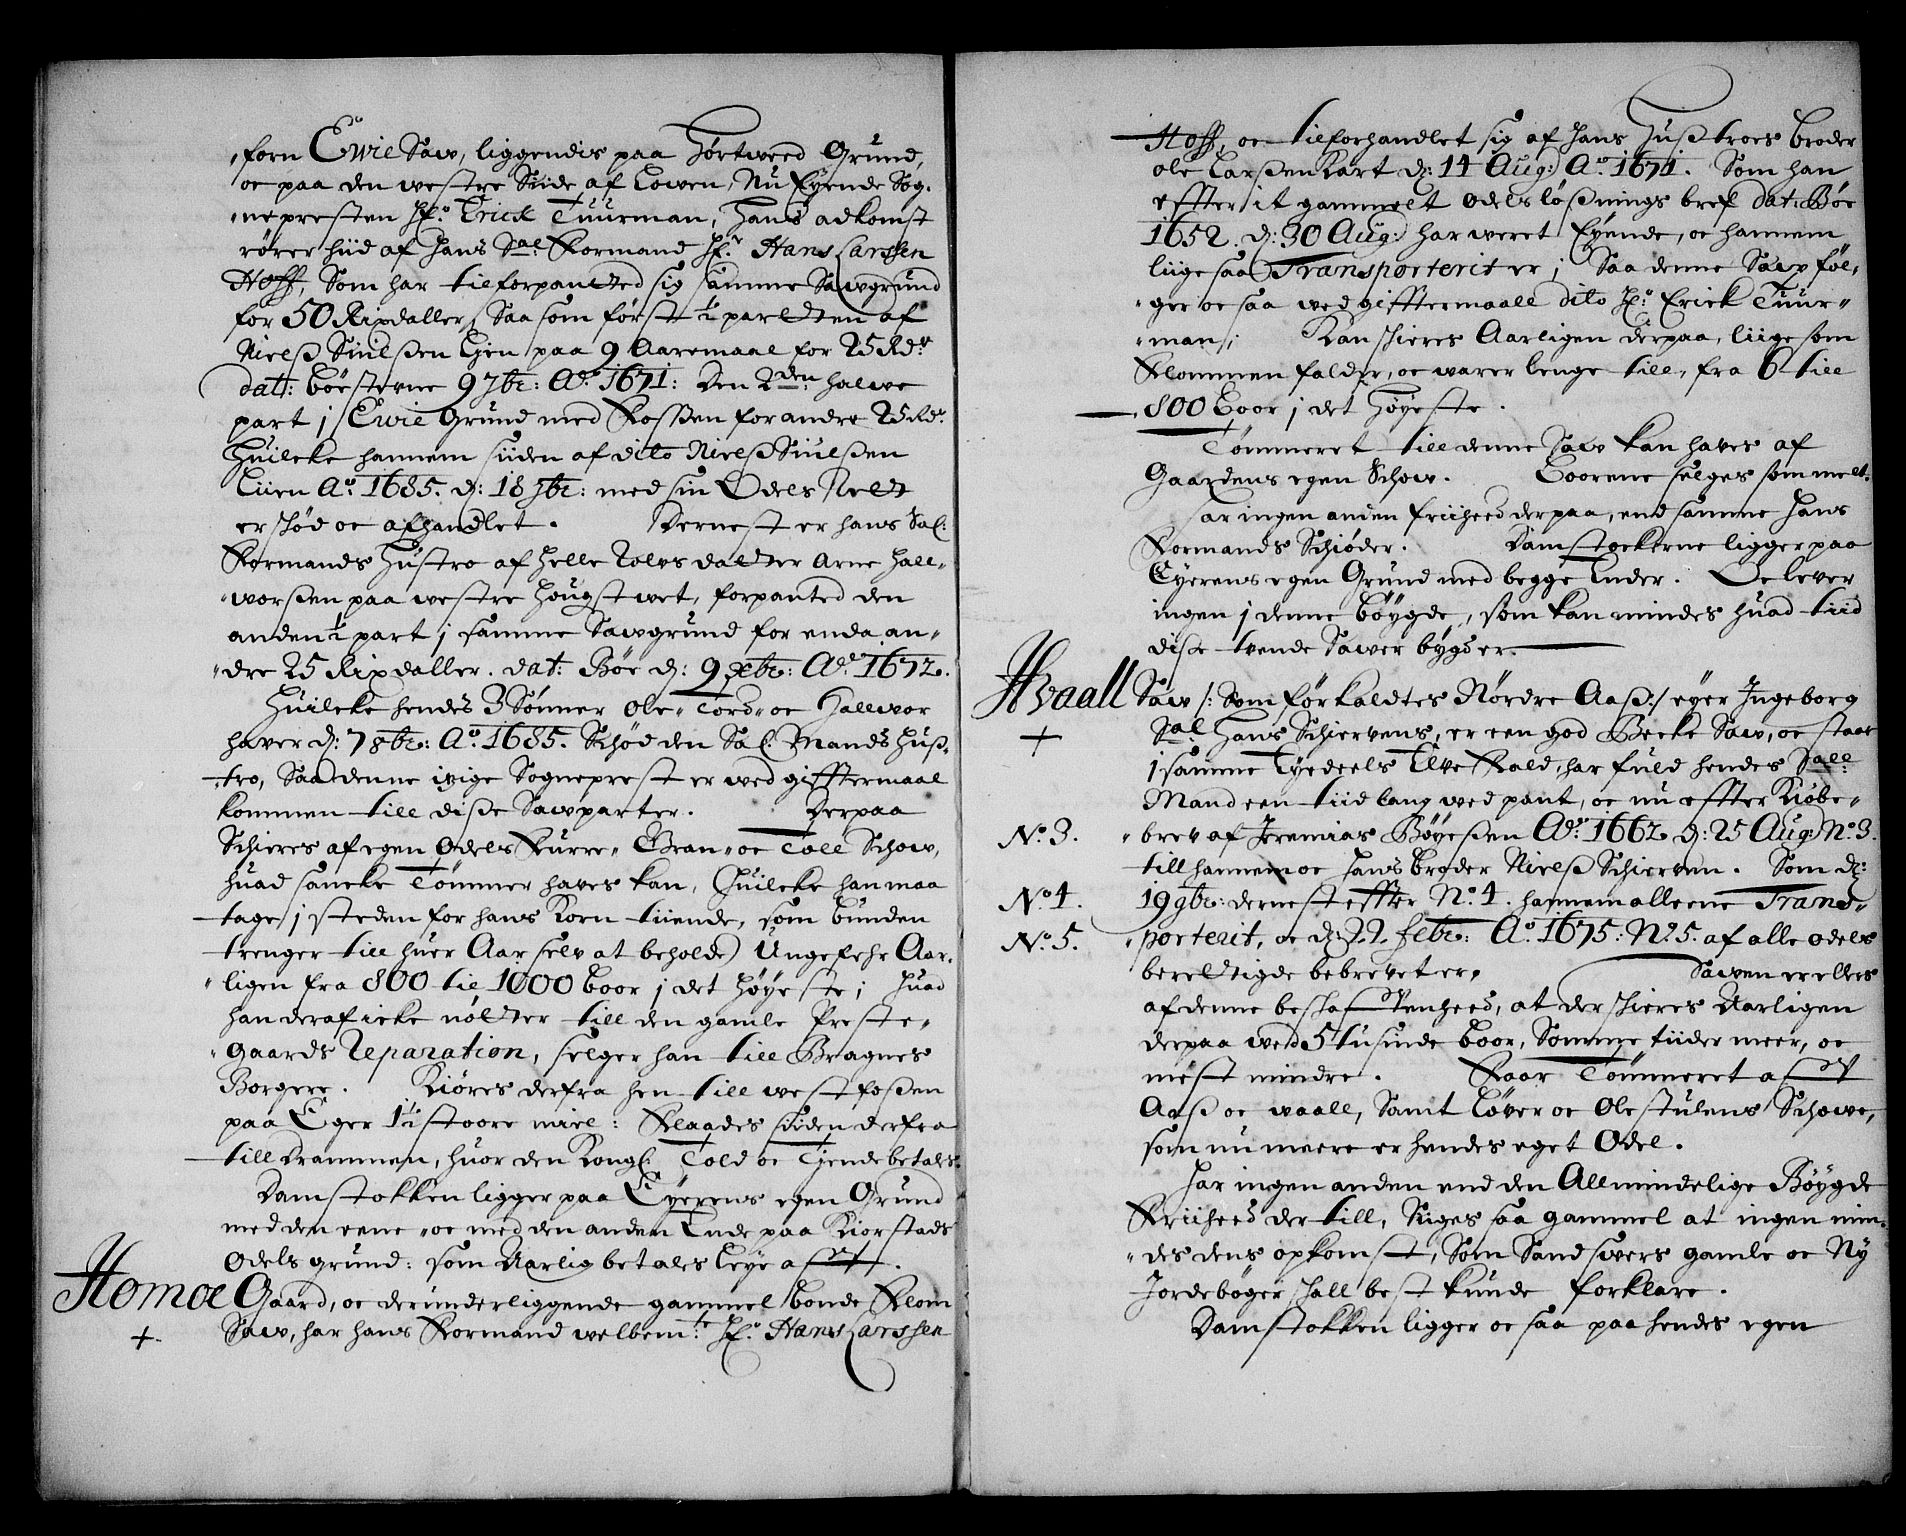 forn Ewie Saw, liggendis paa Hørtweed Grund,
oc paa den westre Siide af Lowen, Nu Eyende Sog„
„ne presten Hr. Erick Tuurman, Hans adkomst
rører hiid af Hans Sal: Formand Hr. Hans Larssen
Hoff, Som har tilforpanted sig samme Sawgrund
for 50 Rixdaller, Saa som først ½ parten af
Nielß Siulßen Lien paa 9 Aaremaal for 25 Rdr
dat: Bøestevne 9 7br: Ao. 1671: Den 2den halwe
part j Ewie Grund med Foßen for andre 25 Rdr.
Huilcke hannem siiden af dito Nielß Siulßen
Liien Ao. 1685. d: 18 9br: med sin Odels Rett
er skød oc afhandlet. Dernest er hans Sal:
Formands Hustro af Helle Rolvsdaatter Arne Hall„
„worßen paa westre Hougstwet, forpanted den
anden ½ part j samme Sawgrund for enda an„
„dre 25 Rixdaller. dat: Bøe d: 9 xbr: Ao. 1672.
Huilcke hendes 3 Sønner Ole„ Tord„ oc Hallwor
haver d: 7 8br: Ao. 1685. Schød den Sal: Mands Hus„
„tro, Saa denne ivige Sogneprest er wed gifftermaal
kommen till diße Sawparter. Derpaa
Schieres af egen Odels Furre„ Gran„ oc Toll Schow,
huad sancke Tømmer haves kan, (Huilcke han maa
tage j steden for hans Korn tiiende, som bunden
trenger till huer Aar selv at beholde) Ungefehr Aar„
„ligen fra 800 til 1000 Boor j det høyeste; Huad
han deraf icke nøtter till den gamle Preste„
„gaards Reparation, selger han till Bragnes
Borgere. Kiøres derfra hen till westfoßen
paa Eger 1½ stoore miel: Flaades siiden derfra
till Drammen, huor den Kongl: Told oc Tjende betales.
Damstokken ligger paa Eyerens egen Grund
med den eene„ oc med den anden Ende paa Kiorstads
Odels grund: som Aarlig betales Leye aff.
Homoe Gaard, oc derunderliggende gammel bonde Flom
+ Saw, har hans Formand welbemte Hr. Hans Larssen
Hoff, oc tilforhandlet sig af Hans Hußtroes broder
Ole Larßen Kart d: 14 Aug: Ao. 1671. Som han
effter it gammelt Odelsløßnings bref dat: Bøe
1652. d: 30 Aug: har weret Eyende, oc hannem
liigesaa Transporterit er; Saa denne Saw føl„
„ger oc saa wed gifftermaall dito Hr. Erick Tuur„
„man; Kan skieres Aarligen derpaa, liige som
Flommen falder, oc warer lenge till, fra 6 till
800 Boor j det høyeste.
Tømmeret till denne Saw kan haves af
Gaardens egen Schow. Boorene selges som melt.
Har ingen anden friiheed derpaa, end samme Hans
Formands Schiøder. Damstockerne ligger paa
Eyerens egen Grund med begge Ender. Oc lever
ingen j denne bøygde, som kan mindes huad tiid
diße tvende Sawer bygd er.
Hvaall Saw /: Som før kaldtes Nørdre Aaß :/ eyer Ingeborg
+ Sal. Hans Schiervens, er een god Becke Saw, oc staar
j samme Eyedeels Elve Fald, har fuld hendes Sall:
Mand een tiid lang wed pant, oc nu effter Kiøbe„
No. 3. „brev af Jeremias Bøyeßen Ao. 1662 d: 25 Aug: No 3.
till hannem oc Hans broder Nielß Schierven. Som d:
No. 4. 19 9br: dernest effter No. 4. hannem alleene Trans„
No. 5. „porterit, oc d: 22. febr: Ao. 1675: No. 5: af alle Odels
berettigde bebrevet er. Sawen er ellers
af denne beskaffenheed, at der skieres Aarligen
derpaa wed 5 tusinde boor, Somme tiider meer, oc
mest mindre. Faar Tømmeret aff
Aaß oc waall, Samt Løver oc Olestulens Schowe,
som nu meere er hendes eget Odel.
Har ingen anden end den Allmindelige Bøygde
Friiheed der till, Siiges saa gammel at ingen min„
„des dens opkomst, Som Sandswers gamle oc Ny
Jordebøger skall best kunde forklare.
Damstokken ligger oc saa paa hendes egen